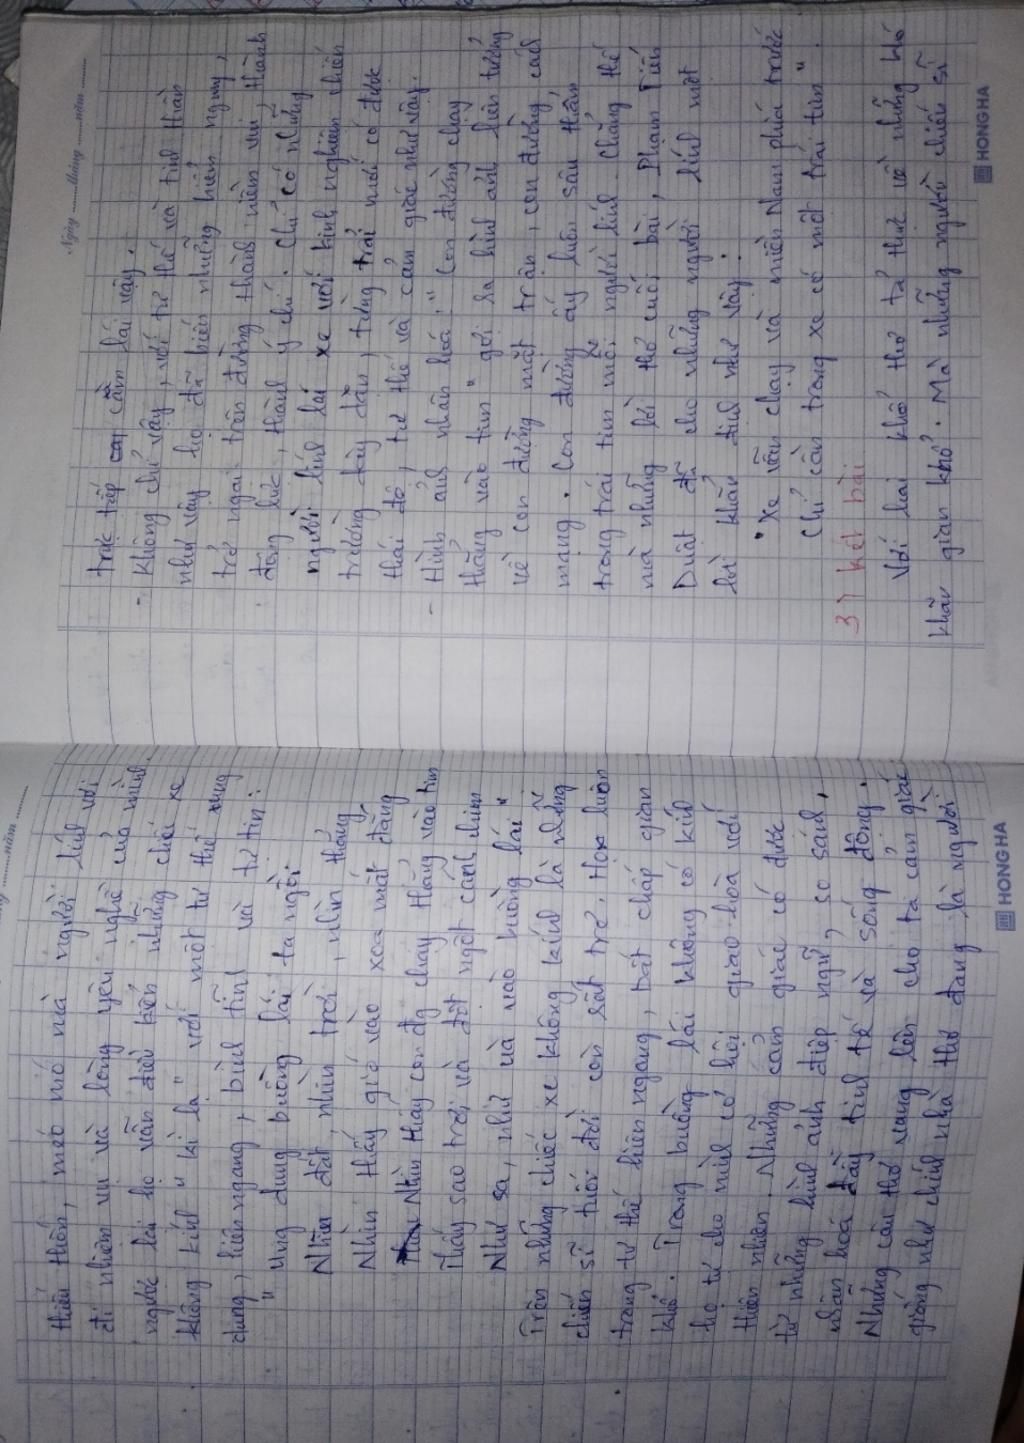 .........năm .........
thiếu thốn, méo mó mà người lính với
đi nhiệm vụ và lòng yêu nghề của mình.
người lái họ vẫn điều kiển những chiếc xe
không kính " kì lạ " với một tư thế ung
dung, hiên ngang, bình tĩnh và tự tin :
" Ung dung buồng lái ta ngồi
Nhìn đất, nhìn trời, nhìn thẳng,
Nhìn thấy gió vào xoa mắt đắng
Nhìn thấy con đg chạy thẳng vào tim
Thấy sao trời và đột ngột cánh chim
Như sa, như ùa vào buồng lái "
Trên những chiếc xe không kính là những
chiến sĩ tuổi đời còn rất trẻ. Họ luôn
trong tư thế hiên ngang, bất chấp gian
khổ. Trong buồng lái không có kính
họ tự cho mình cơ hội giao hoà với
thiên nhiên. Những cảm giác có được
từ những hình ảnh điệp ngữ, so sánh,
nhân hoá đầy tinh tế và sống động.
Những câu thơ vang lên cho ta cảm giác
giống như chính nhà thơ đang là người
HONG HA
Ngày .........tháng .........năm .........
trực tiếp cầm lái vậy.
- Không chỉ vậy, với tư thế và tinh thần
như vậy họ đã biến những hiểm nguy,
trở ngại trên đường thành niềm vui, thành
động lực, thành ý chí. Chỉ có những
người lính lái xe với kinh nghiệm chiến
trường dày dặn, từng trải mới có được
thái độ, tư thế và cảm giác như vậy.
- Hình ảnh nhân hoá : " Con đường chạy
thẳng vào tim " gợi ra hình ảnh liên tưởng
về con đường mặt trận, con đường cách
mạng. Con đường ấy luôn sâu thẳm
trong trái tim mỗi người lính. Chẳng thế
mà những lời thơ cuối bài, Phạm Tiến
Duật đã cho những người lính một
lời khẳn định như vậy :
" Xe vẫn chạy vì miền Nam phía trước
Chỉ cần trong xe có một trái tim ".
3, kết bài
Với hai khổ thơ tả thực về những khó
khăn gian khổ. Mà những người chiến sĩ
HONG HA